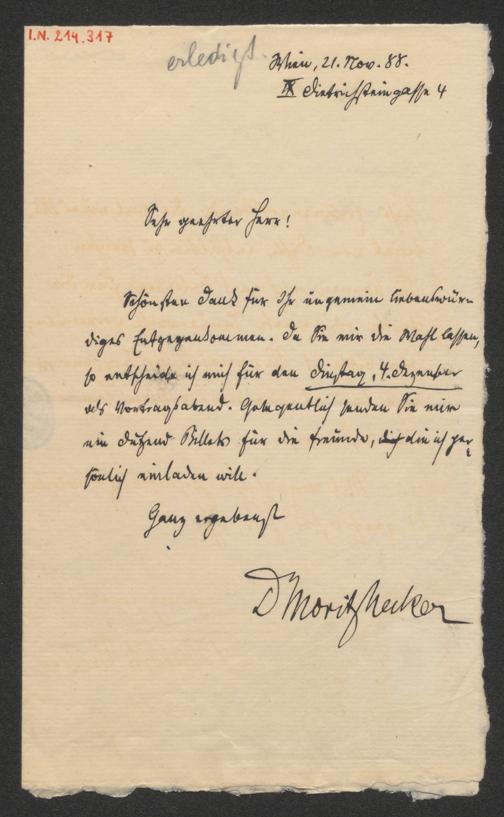 I.N. 214.317
erledigt.
Wien, 21. Nov. 88.
IX Dietrichsteingasse 4
Sehr geehrter Herr!
Schönsten Dank für Ihr ungemein liebenswür-
diges Entgegenkommen. Da Sie mir die Wahl lassen,
so entscheide ich mich für den Dinstag, 4. Dezember
als Vortragsabend. Gelegentlich senden Sie mir
ein Dutzend Billets für die Freunde, die ich per-
sönlich einladen will.
Ganz ergebenst
D Moritz Necker